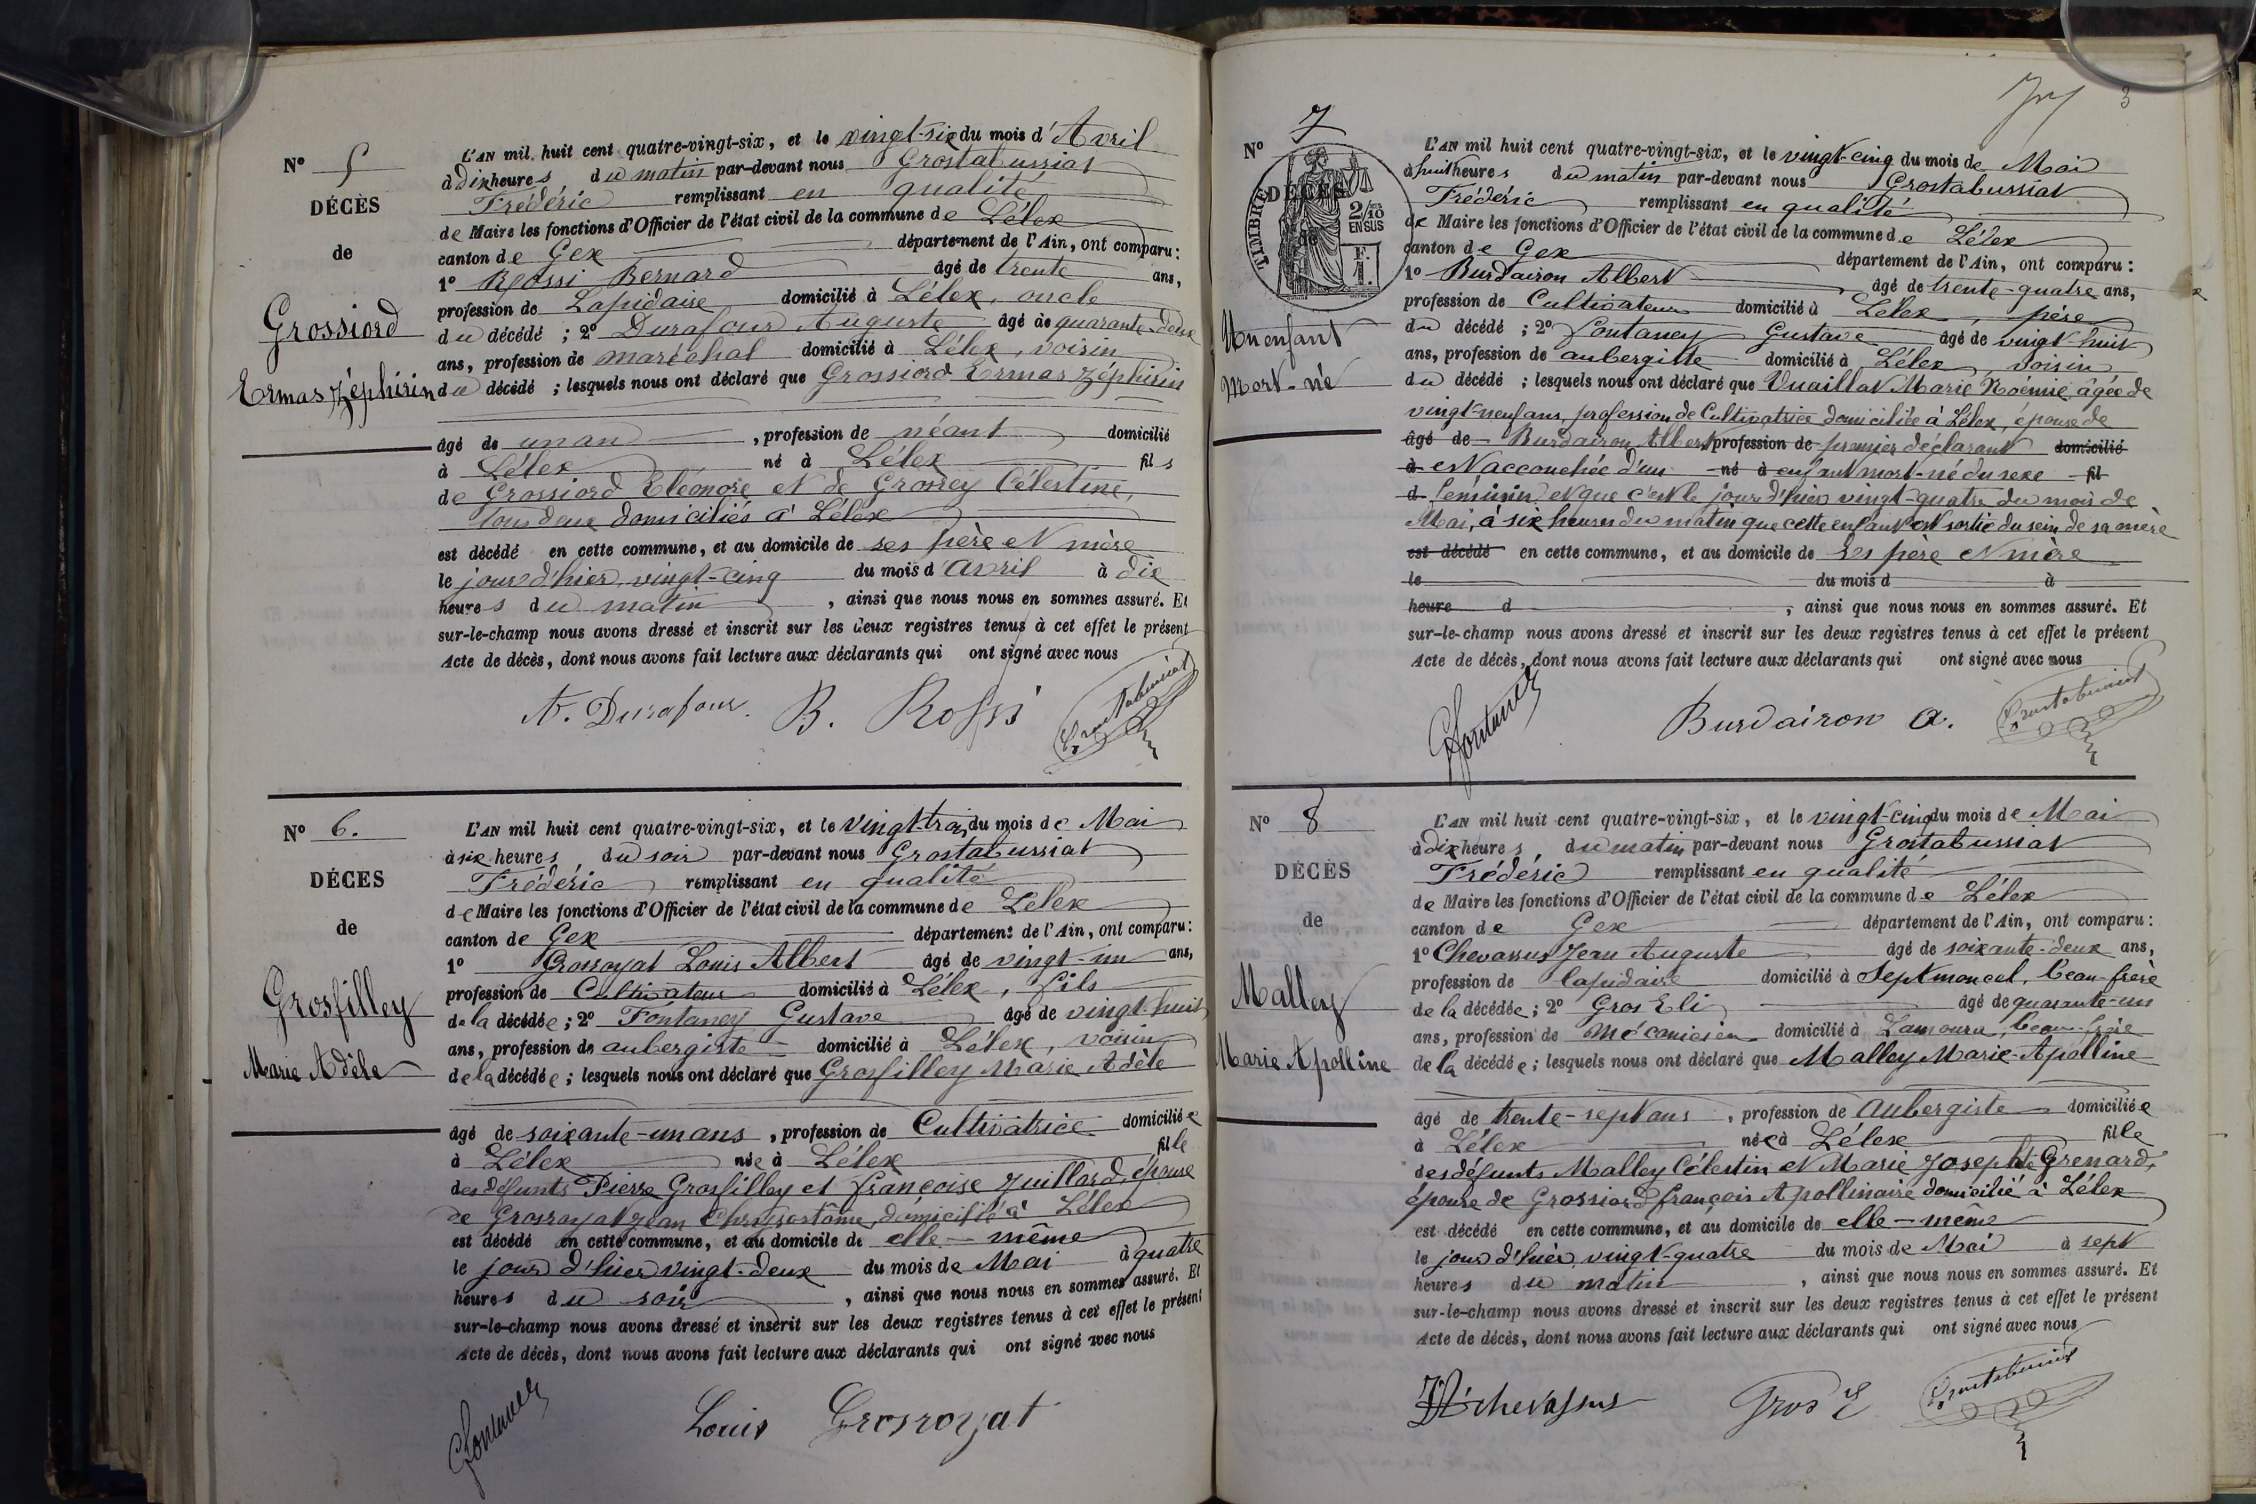 N° 5
DÉCÈS
de
Grossiord
Ermas Zéphirin
L'AN mil huit cent quatre-vingt-six, et le vingt-six du mois d'Avril
à dix heures du matin par-devant nous Grostabussiat
Frédéric remplissant en qualité
de Maire les fonctions d'Officier de l'état civil de la commune de Lélex
canton de Gex département de l'Ain, ont comparu :
1° Rossi Bernard âgé de trente ans,
profession de Lapidaire domicilié à Lélex, oncle
du décédé ; 2° Durafour Auguste âgé de quarante-deux
ans, profession de maréchal domicilié à Lélex, voisin
du décédé ; lesquels nous ont déclaré que Grossiord Ermas Zéphirin
âgé de un an, profession de néant domicilié
à Lélex né à Lélex fils
de Grossiord Eléonore et de Grosrey Célestine,
tous deux domiciliés à Lélex
est décédé en cette commune, et au domicile de ses père et mère
le jour d'hier vingt-cinq du mois d'avril à dix
heures du matin, ainsi que nous nous en sommes assuré. Et
sur-le-champ nous avons dressé et inscrit sur les deux registres tenus à cet effet le présent
Acte de décès, dont nous avons fait lecture aux déclarants qui ont signé avec nous
A. Durafour. B. Rossi Grostabussiat
N° 6.
DÉCES
de
Grosfilley
Marie Adèle
L'AN mil huit cent quatre-vingt-six, et le vingt-trois du mois de Mai
à six heures du soir par-devant nous Grostabussiat
Frédéric remplissant en qualité
de Maire les fonctions d'Officier de l'état civil de la commune de Lélex
canton de Gex département de l'Ain, ont comparu :
1° Grosroyat Louis Albert âgé de vingt-un ans,
profession de Cultivateur domicilié à Lélex, fils
de la décédée ; 2° Fontaney Gustave âgé de vingt-huit
ans, profession de aubergiste domicilié à Lélex, voisin
de la décédée ; lesquels nous ont déclaré que Grosfilley Marie Adèle
âgé de soixante-un ans, profession de Cultivatrice domiciliée
à Lélex née à Lélex fille
des défunts Pierre Grosfilley et françoise Juillard, épouse
de Grosroyat Jean Chrisostôme, domicilié à Lélex
est décédé en cette commune, et au domicile de elle-même
le jour d'hier vingt-deux du mois de Mai à quatre
heures du soir, ainsi que nous nous en sommes assuré. Et
sur-le-champ nous avons dressé et inscrit sur les deux registres tenus à cet effet le présent
Acte de décès, dont nous avons fait lecture aux déclarants qui ont signé avec nous
Louis Grosroyat
3
N° 7
DÉCÈS
de
TIMBRE
2/10
EN SUS
F.
1.
Un enfant
mort-né
L'AN mil huit cent quatre-vingt-six, et le vingt-cinq du mois de Mai
à huit heures du matin par-devant nous Grostabussiat
Frédéric remplissant en qualité
de Maire les fonctions d'Officier de l'état civil de la commune de Lélex
canton de Gex département de l'Ain, ont comparu :
1° Burdairon Albert âgé de trente-quatre ans,
profession de Cultivateur domicilié à Lélex, père
du décédé ; 2° Fontaney Gustave âgé de vingt-huit
ans, profession de aubergiste domicilié à Lélex, voisin
du décédé ; lesquels nous ont déclaré que Vuaillat Marie Noémie, âgée de
vingt-neuf ans, profession de Cultivatrice domiciliée à Lélex, épouse de
âgé de Burdairon Albert profession de premier déclarant domicilié
à est accouchée d'un né à enfant mort-né du sexe fil
d féminin et que c'est le jour d'hier vingt-quatre du mois de
Mai, à six heures du matin que cette enfant est sortie du sein de sa mère
est décédé en cette commune, et au domicile de ses père et mère
le du mois d à
heure d, ainsi que nous nous en sommes assuré. Et
sur-le-champ nous avons dressé et inscrit sur les deux registres tenus à cet effet le présent
Acte de décès, dont nous avons fait lecture aux déclarants qui ont signé avec nous
Burdairon A. Grostabussiat
N° 8
DÉCÈS
de
Malley
Marie Apolline
L'AN mil huit cent quatre-vingt-six, et le vingt-cinq du mois de Mai
à dix heures du matin par-devant nous Grostabussiat
Frédéric remplissant en qualité
de Maire les fonctions d'Officier de l'état civil de la commune de Lélex
canton de Gex département de l'Ain, ont comparu :
1° Chevassus Jean Auguste âgé de soixante-deux ans,
profession de lapidaire domicilié à Septmoncel, beau-frère
de la décédée ; 2° Gros Eli âgé de quarante-un
ans, profession de mécanicien domicilié à Lamoura, beau-frère
de la décédée ; lesquels nous ont déclaré que Malley Marie-Apolline
âgé de trente-sept ans, profession de aubergiste domiciliée
à Lélex née à Lélex fille
des défunts Malley Célestin et Marie Josephte Grenard,
épouse de Grossiord françois Apollinaire domicilié à Lélex
est décédé en cette commune, et au domicile de elle-même
le jour d'hier vingt-quatre du mois de Mai à sept
heures du matin, ainsi que nous nous en sommes assuré. Et
sur-le-champ nous avons dressé et inscrit sur les deux registres tenus à cet effet le présent
Acte de décès, dont nous avons fait lecture aux déclarants qui ont signé avec nous
chevassus Gros E Grostabussiat